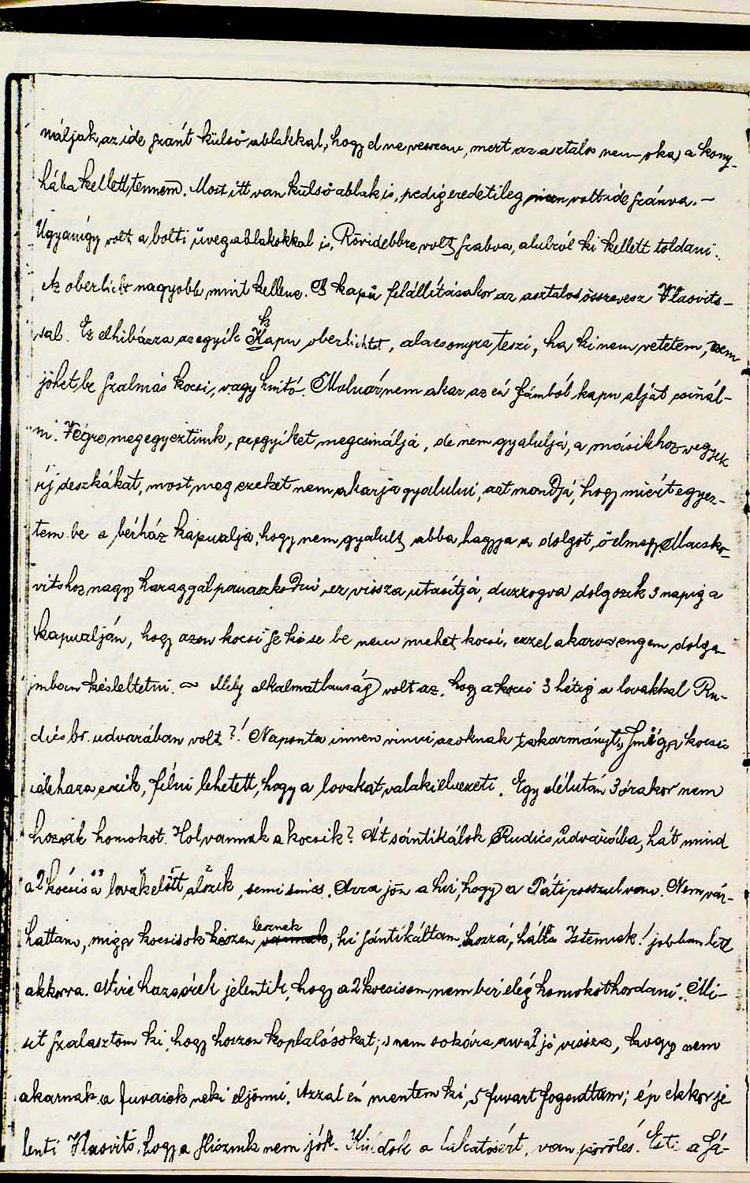 náljak az ide szánt külső ablakkal, hogy el ne vesszen, mert az asztalos nem oka, a kony-
hába kellett tennem. Most itt van külső ablak is, pedig eredetileg nem volt ide szánva. —
Ugyanígy volt a bolti üvegablakokkal is, Rövidebbre volt szabva, alulról ki kellett toldani.
Az oberlicht nagyobb mint kellene. A kapu felállításakor az asztalos összevesz Vlasvits-
sal. Ez elhibázza az egyik Kapu oberlichtet, alacsonyra teszi, ha ki nem vetetem, nem
jöhet be szalmás kocsi, vagy hintó. Molnár nem akar az én fámból kapu alját csinál-
ni. Végre megegyeztünk, egyiket megcsinálja, de nem gyalulja, a másikhoz vegyek
új deszkákat, most meg ezeket nem akarja gyalulni, azt mondja, hogy miért egyez-
tem be a bérház kapualja, hogy nem gyalult, abba hagyja a dolgot, ő elmegy Macsko-
vitshoz nagy haraggal panaszkodni ez vissza utasítja, duzzogva dolgozik 3 napig a
kapualján, hogy azon kocsi se ki se be nem mehet kocsi, ezzel akarva engem dolga-
imban késleltetni. ~ Mily alkalmatlanság volt az, hogy a kocsi 3 hétig a lovakkal Ru-
dics br. udvarában volt?! Naponta innen vinni azoknak takarmányt, míg a kocsis
ide haza eszik, félni lehetett, hogy a lovakat valaki elvezeti. Egy délután 3 órakor nem
hoznak homokot. Hol vannak a kocsik? Át sántikálok Rudics udvaróiba, hát mind
a 2 kocsis a lovak előtt alszik, semi sincs. Arra jön a hír, hogy a Páti rosszul van. Nem vár-
hattam, míg a kocsisok készen lesznek, ki sántikáltam hozzá, hála Istennek! jobban lett
akkorra. Mire hazaérek jelentik, hogy a 2 kocsisom nem bir elég homokot hordani. Mi-
sit szalasztom ki, hogy hozzon koplalósokat; s nem sokára azzal jő vissza, hogy nem
akarnak a fuvarok neki eljönni. Azzal én mentem ki, 5 fuvart fogadtam; ép ekkor je-
lenti Vlasvits, hogy a slicznik nem jók. Küldök a lakatosért, van pörölés. Esti a